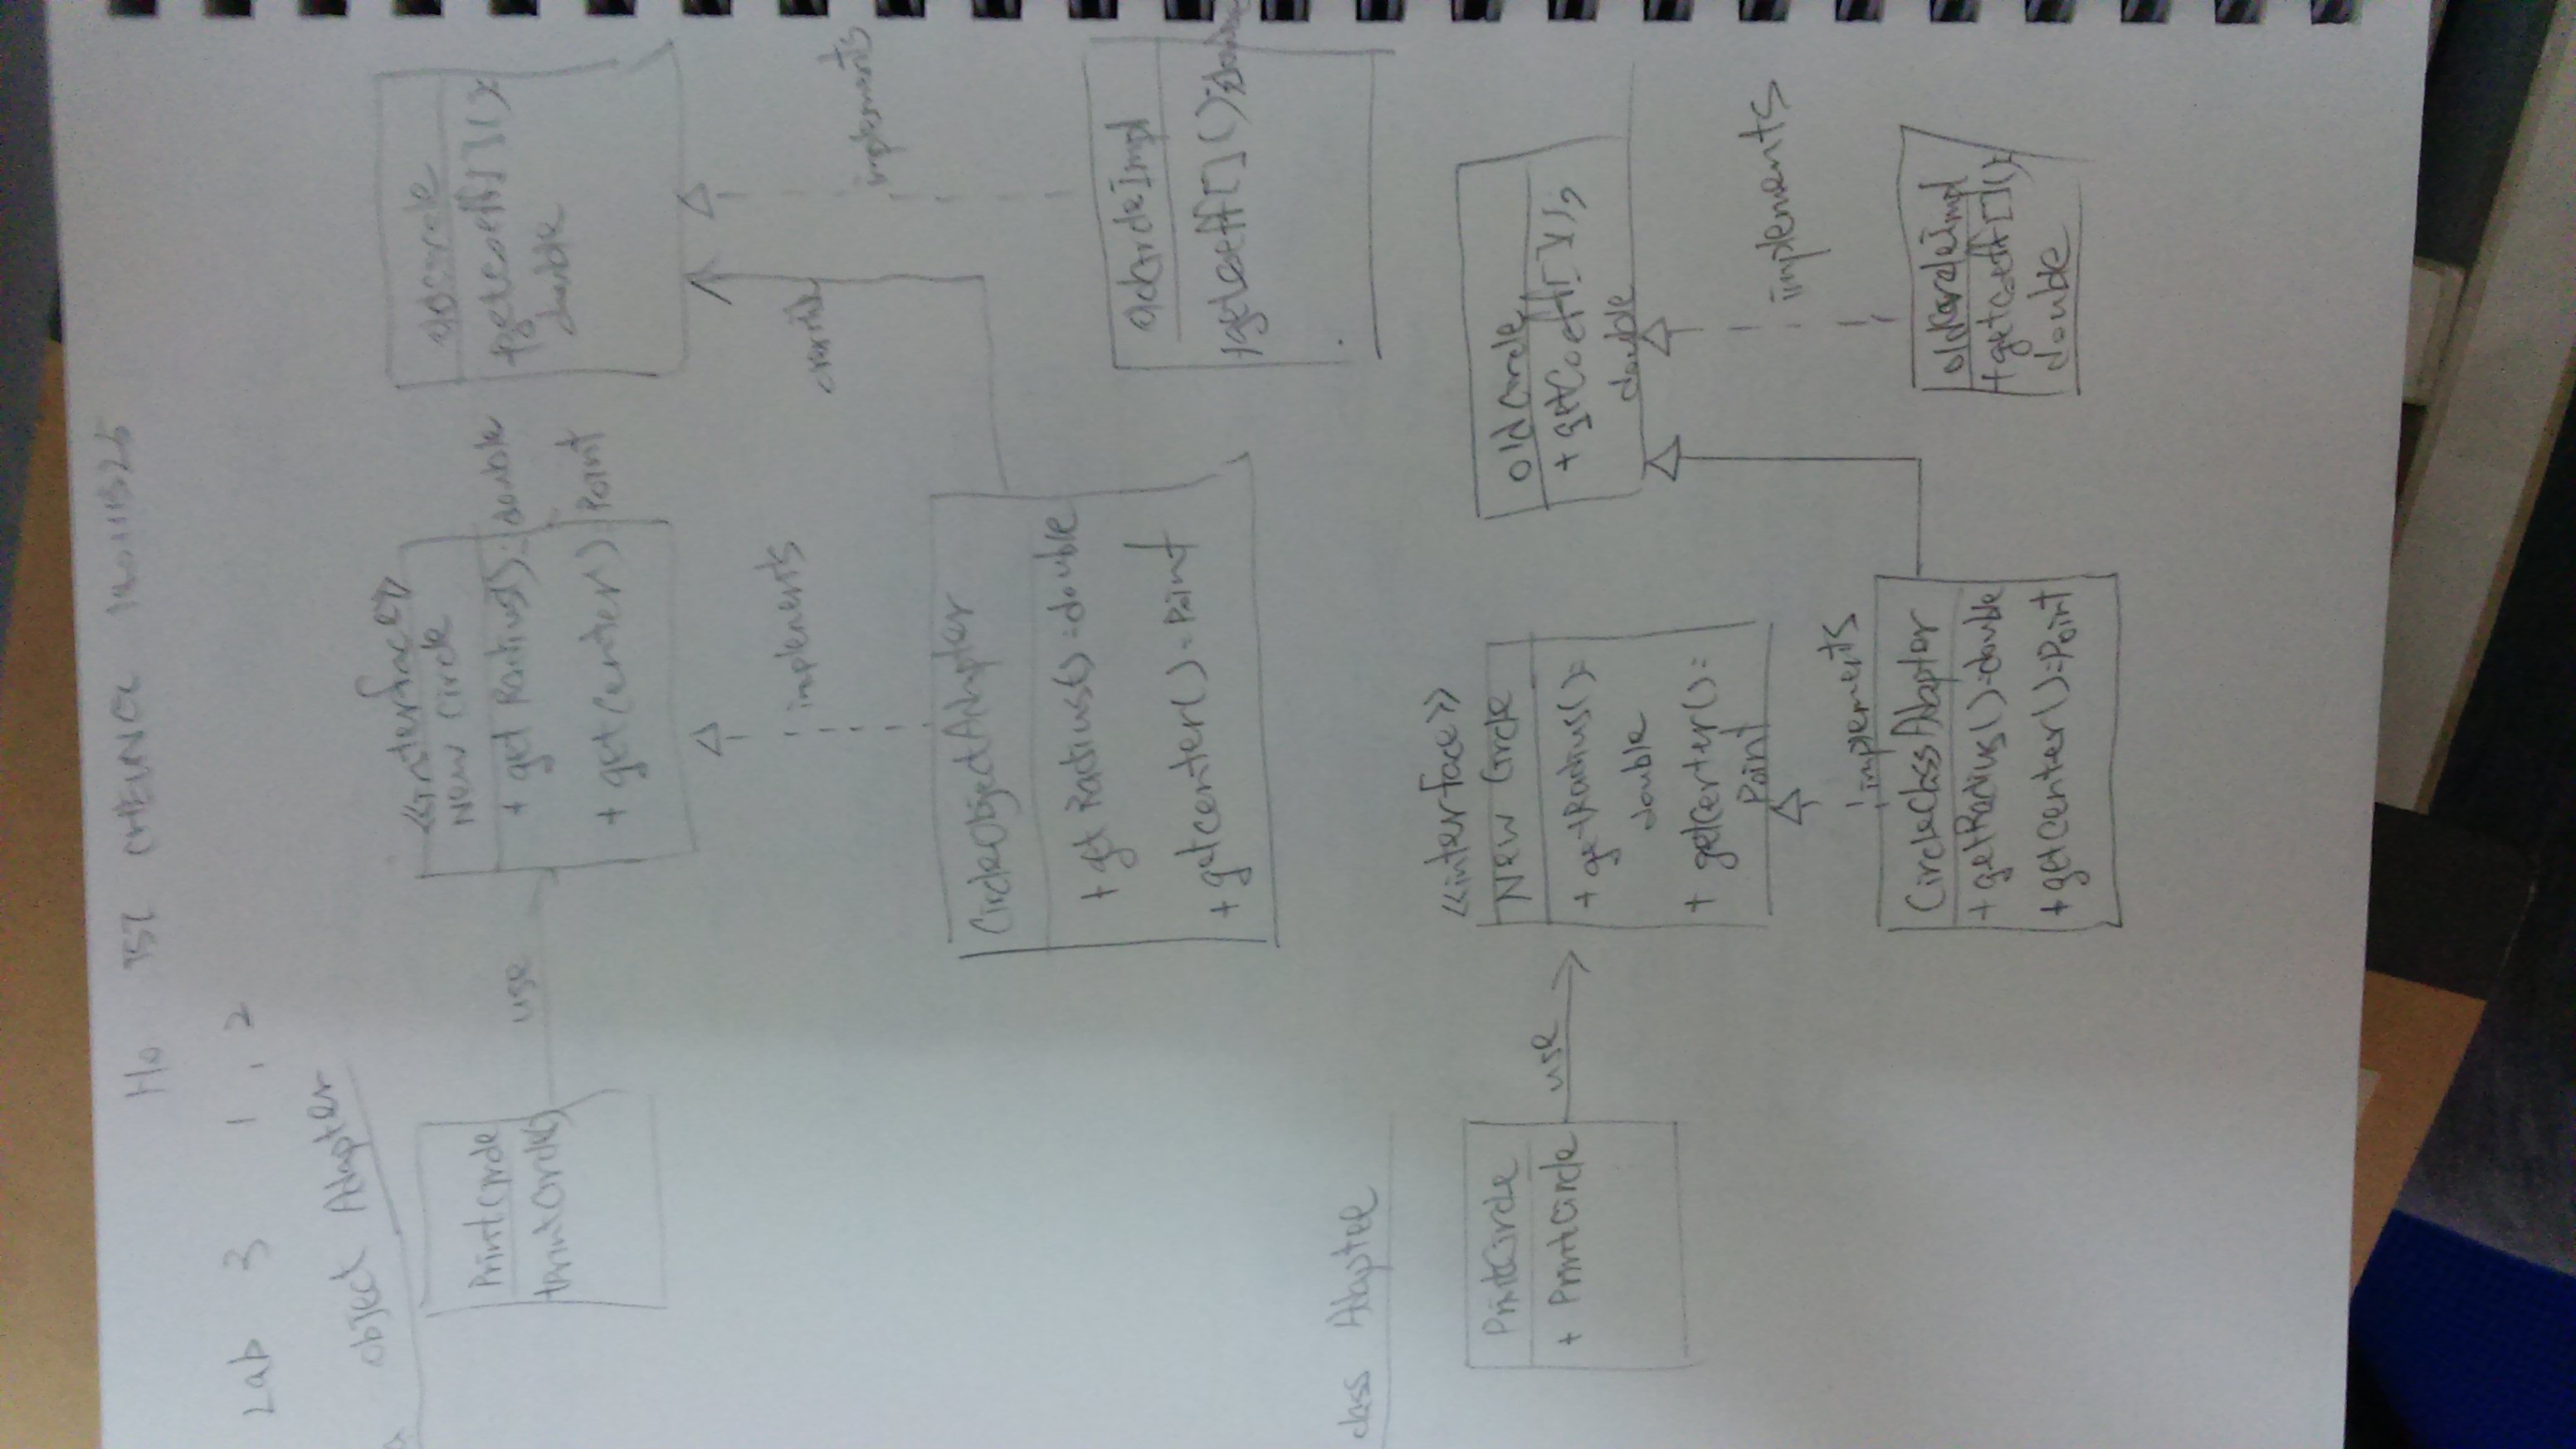 Ho TSZ CHEUNG
Lab 3 1, 2
a object Adapter
PrintCircle
+PrintCircle()
use
<<interface>>
New Circle
+ get Radius(): double
+ getCenter(): Point
oldcircle
+getCoeff[]():
double
implements
override
implements
CircleObjectAdapter
+ get Radius(): double
+ getcenter(): Point
oldCircleImpl
+getCoeff[]():double
class Adapter
PrintCircle
+ PrintCircle
use
<<interface>>
New Circle
+ getRadius():
double
+ getCenter():
Point
oldCircle
+ getCoeff[]():
double
implements
implements
CircleClassAdapter
+ getRadius():double
+ getCenter():Point
oldCircleImpl
+getCoeff[]():
double